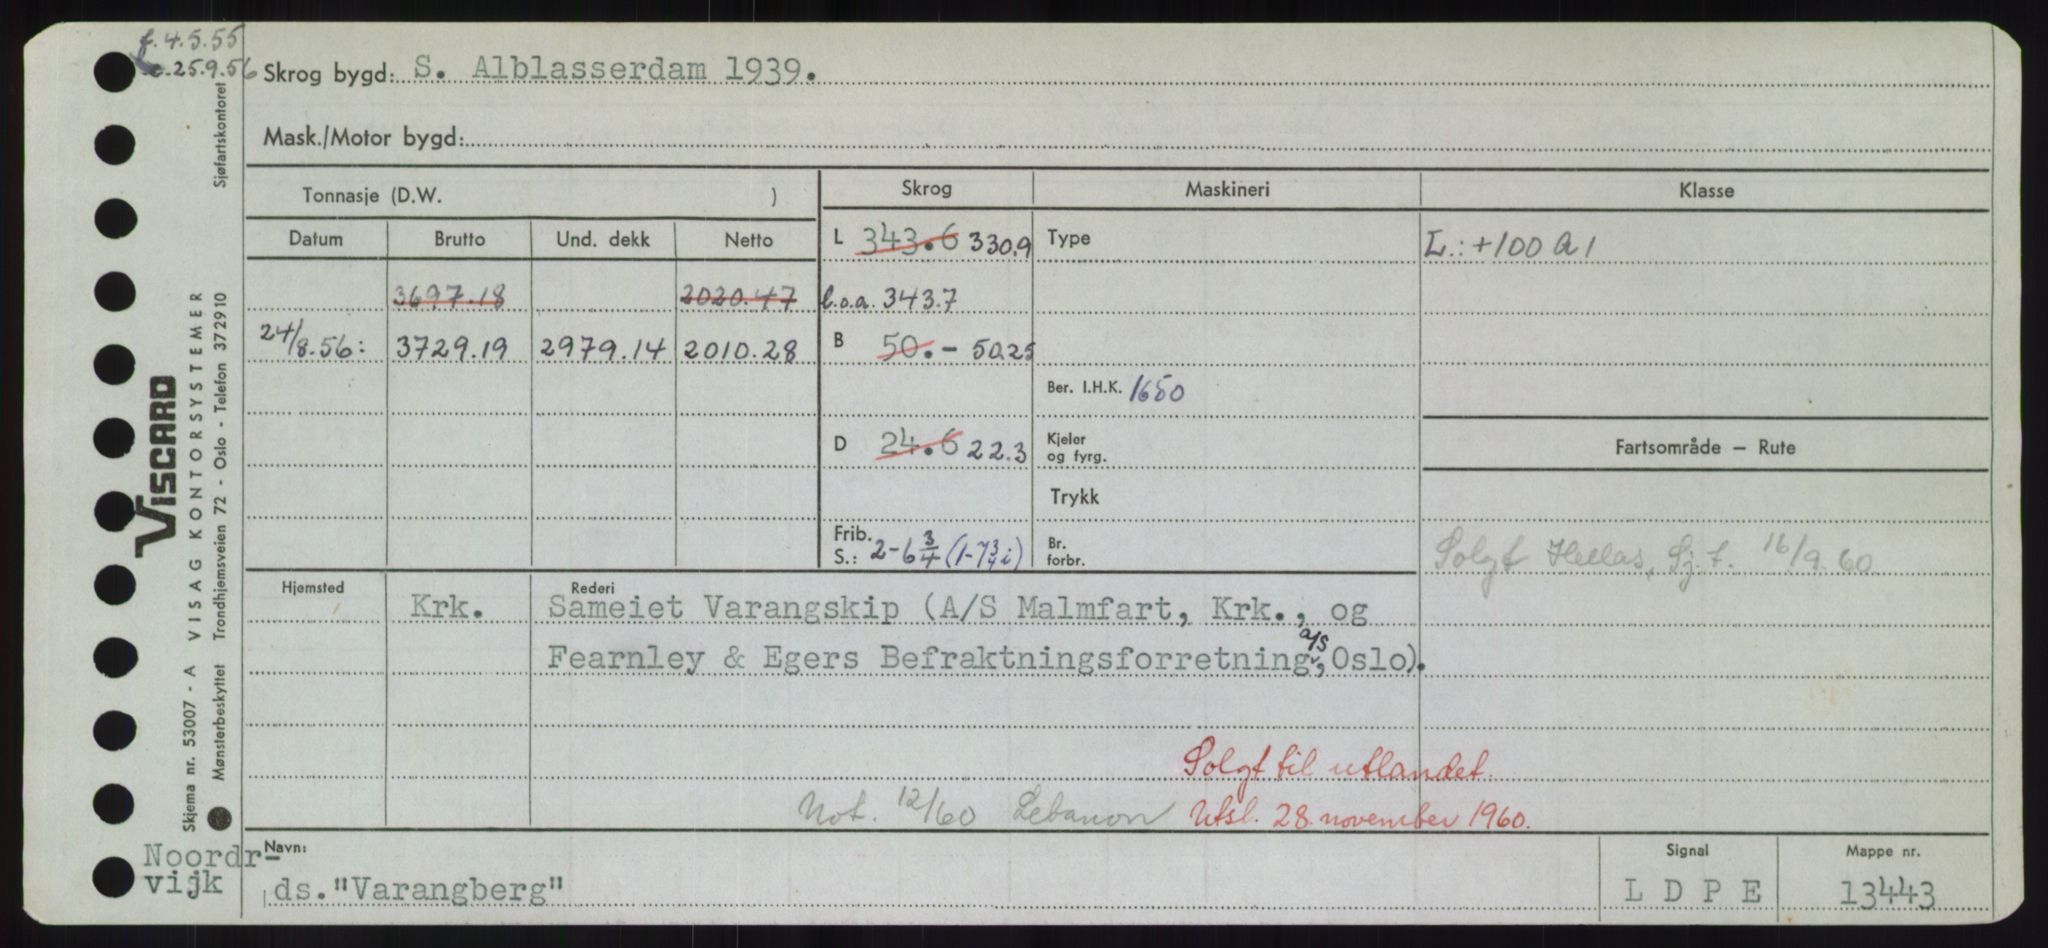 f. 4.5.55
25.9.56
Skrog bygd: S. Alblasserdam 1939.
Mask./Motor bygd:
Tonnasje (D.W. )
Skrog
Maskineri
Klasse
Datum
Brutto
Und. dekk
Netto
L 343.6 330.9
Type
L.: +100 A 1
3697.18
2020.47
l.o.a. 343.7
24/8.56:
3729.19
2979.14
2010.28
B 50.- 50.25
Ber. I.H.K. 1650
D 24.6 22.3
Kjeler
og fyrg.
Fartsområde – Rute
Trykk
Frib.
S.: 2-6 3/4 (1-7 3/4 i)
Br.
forbr.
Solgt Hellas, Sj.t. 16/9.60
Hjemsted
Krk.
Rederi
Sameiet Varangskip (A/S Malmfart, Krk., og
Fearnley & Egers Befraktningsforretning a/s, Oslo).
Solgt til utlandet.
Not. 12/60 Lebanon Utsl. 28. november 1960.
Noordr-
vijk
Navn:
ds. "Varangberg"
Signal
L D P E
Mappe nr.
13443
Skjema nr. 53007 - A VISAG KONTORSYSTEMER
VISCARD
Mønsterbeskyttet Trondhjemsveien 72 - Oslo - Telefon 372910 Sjøfartskontoret